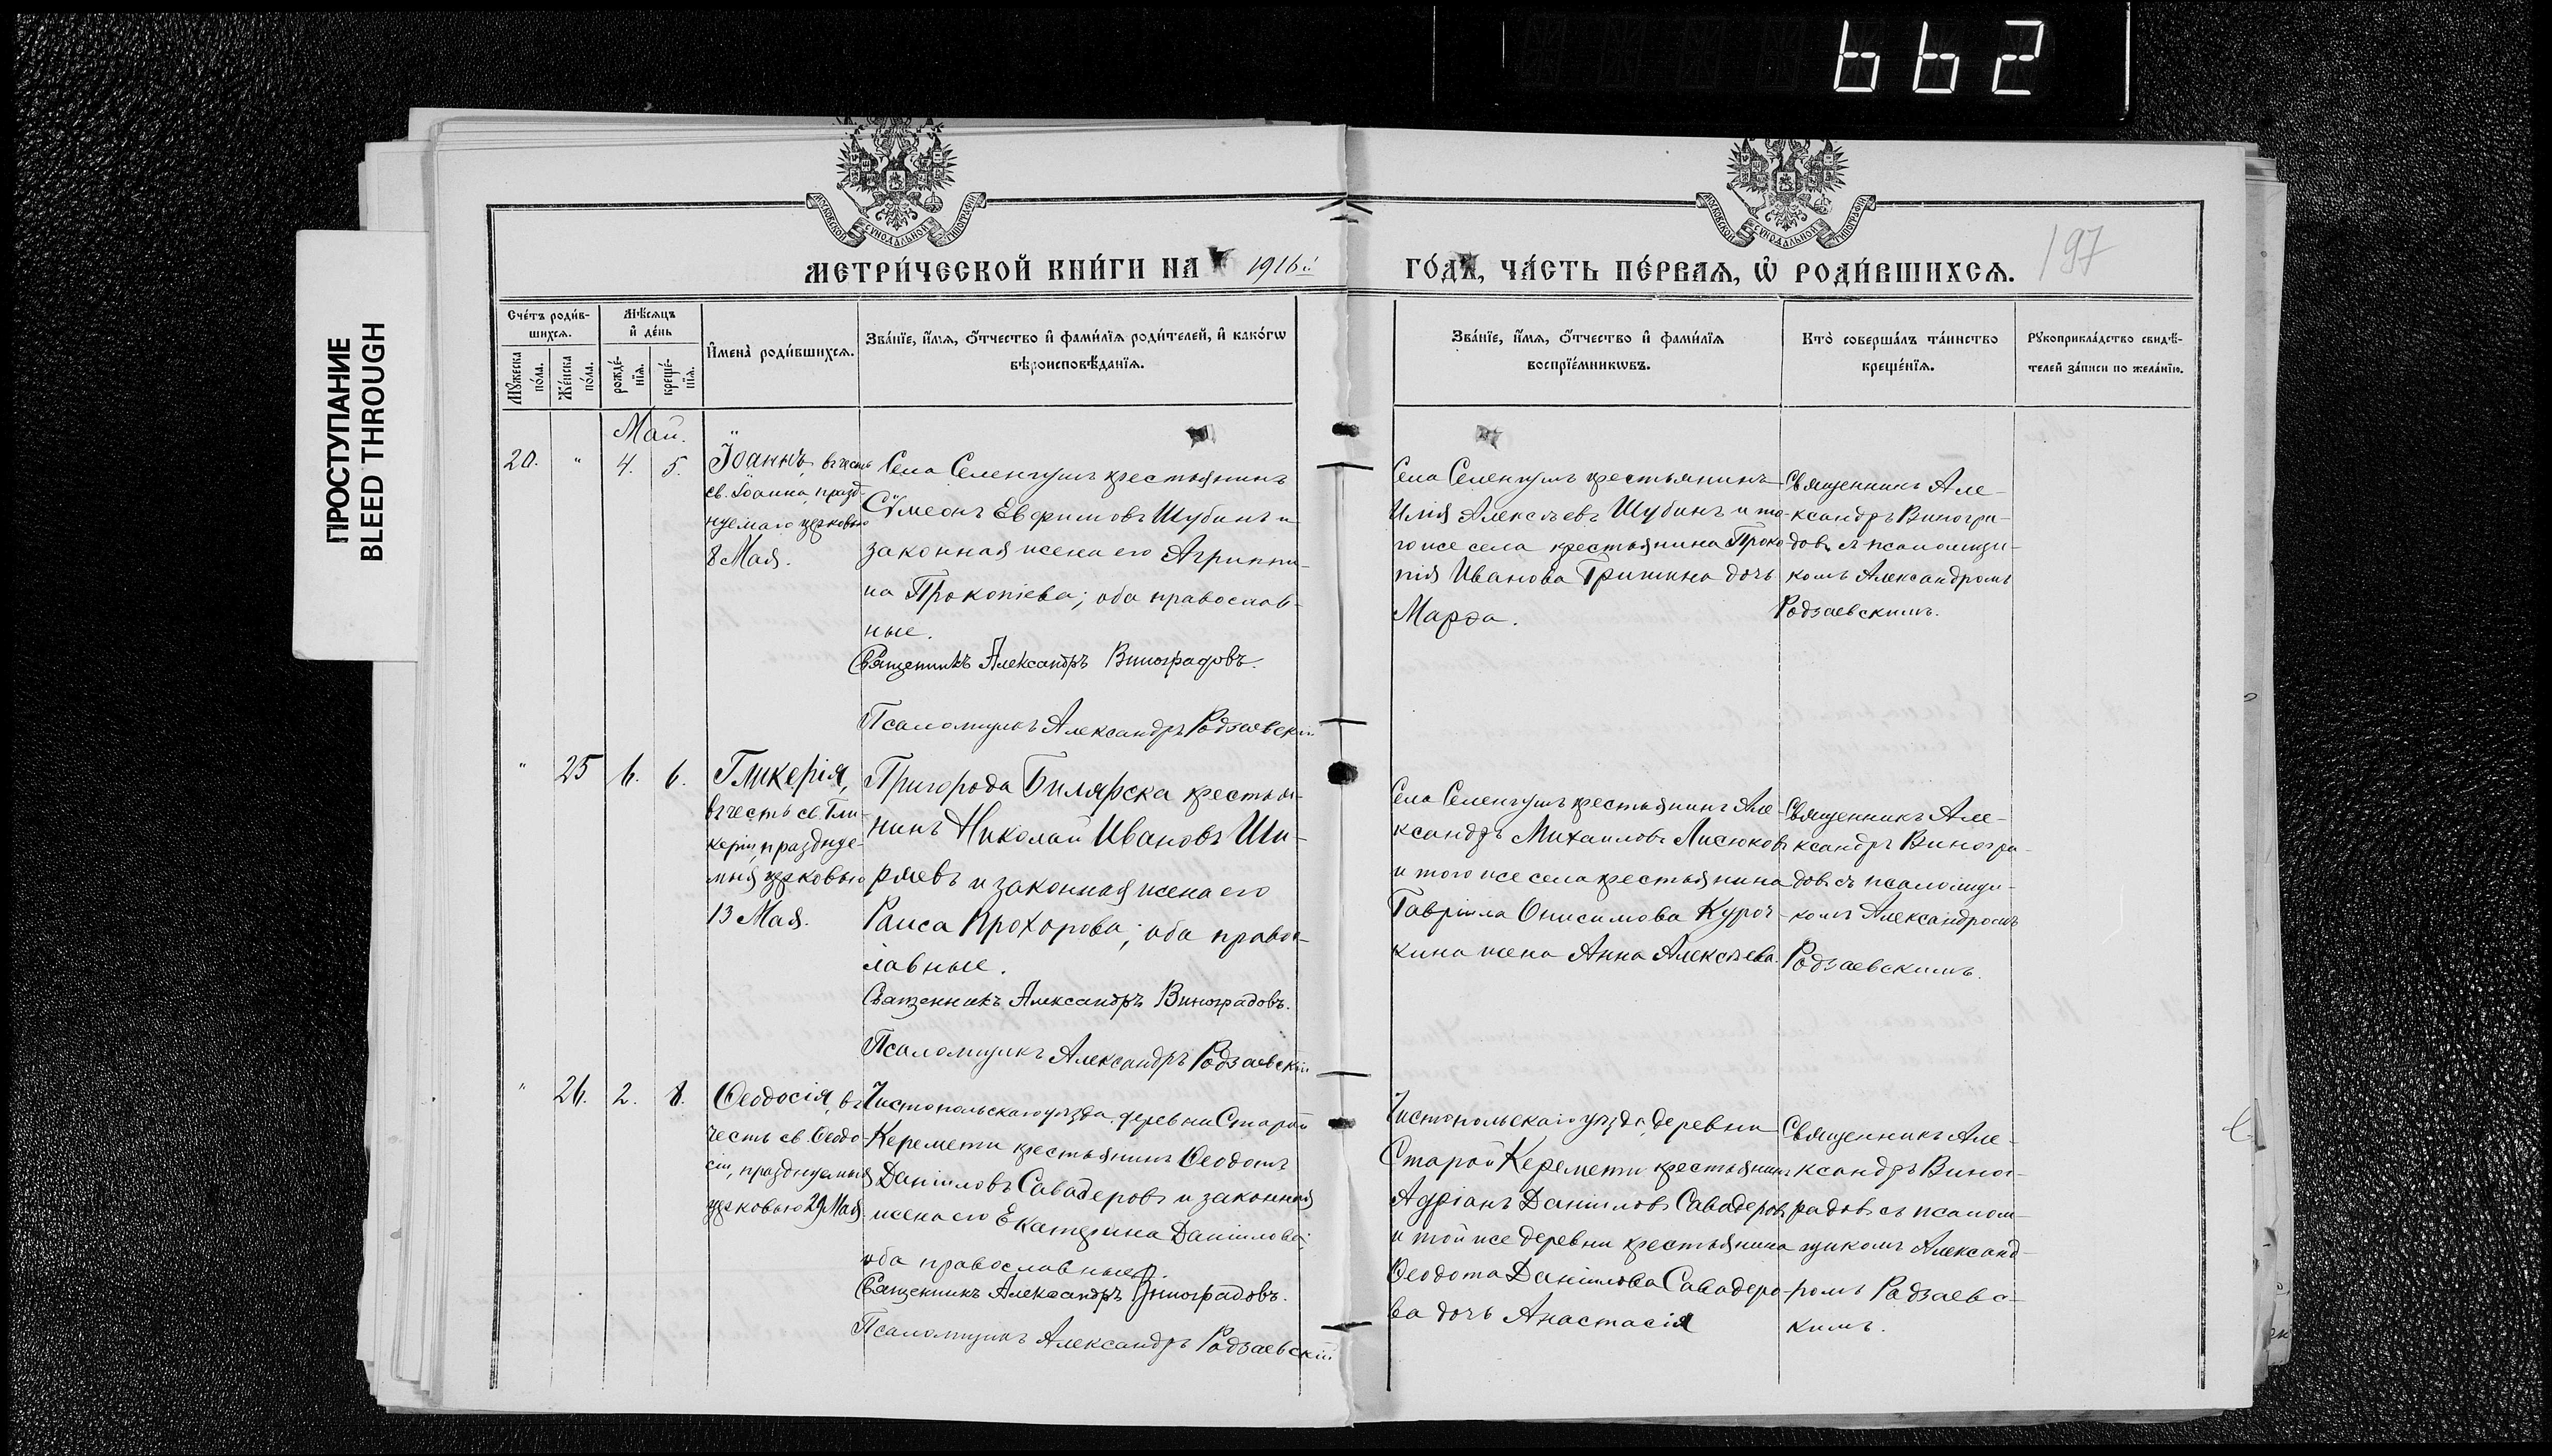 662
ПРОСТУПАНИЕ
BLEED THROUGH
МОСКОВСКОЙ СѴНОДАЛЬНОЙ ТИПОГРАФІИ
МОСКОВСКОЙ СѴНОДАЛЬНОЙ ТИПОГРАФІИ
МЕТРИ́ЧЕСКОЙ КНИ́ГИ НА 1916й
ГО́ДЪ, ЧА́СТЬ ПЕ́РВАѦ, Ѡ҆ РОДИ́ВШИХСѦ.
197
Сче́тъ роди́в-
шихсѧ.
Мꙋ́жеска
по́ла.
Же́нска
по́ла.
Мѣ́сѧцъ
и҆ де́нь
рожде́-
нїѧ.
креще́-
нїѧ.
И҆мена̀ роди́вшихсѧ.
Зва́нїе, и҆́мѧ, ѻ҆́тчество и҆ фами́лїѧ роди́телей, и҆ како́гѡ
вѣроисповѣ́данїѧ.
Зва́нїе, и҆́мѧ, ѻ҆́тчество и҆ фами́лїѧ
воспрїе́мникѡвъ.
Кто̀ соверша́лъ та́инство
креще́нїѧ.
Рꙋкоприкла́дство свидѣ́-
телей за́писи по жела́нїю.
Май.
20. " 4. 5.
Іоаннъ, въ честь
св. Іоанна, празд-
нуемаго церковью
8 Мая.
Села Селенгушъ крестьянинъ
Сѵмеонъ Евфимовъ Шубинъ и
законная жена его Агриппи-
на Прокопіева; оба православ-
ные.
Священникъ Александръ Виноградовъ.
Псаломщикъ Александръ Родзаевскій
Села Селенгушъ крестьянинъ
Илія Алексѣевъ Шубинъ и то-
го же села крестьянина Проко
пія Иванова Гришина дочь
Марѳа.
Священникъ Але-
ксандръ Виногра-
довъ съ псаломщи-
комъ Александромъ
Родзаевскимъ.
" 25 6. 6.
Гликерія,
въ честь св. Гли-
керіи, празднуе-
мыя церковью
13 Мая.
Пригорода Билярска крестья-
нинъ Николай Ивановъ Ши-
ряевъ и законная жена его
Раиса Прохорова; оба правос-
лавные.
Священникъ Александръ Виноградовъ.
Псаломщикъ Александръ Родзаевскій
Села Селенгушъ крестьянинъ Але-
ксандръ Михаиловъ Лисюковъ
и того же села крестьянина
Гавріила Онисимова Куроч-
кина жена Анна Алексѣева.
Священникъ Але-
ксандръ Виногра-
довъ съ псаломщи-
комъ Александромъ
Родзаевскимъ.
" 26. 2. 8.
Ѳеодосія, въ
честь св. Ѳеодо-
сіи, празднуемыя
церковью 29 Мая.
Чистопольскаго уѣзда деревни Старой
Керемети крестьянинъ Ѳеодотъ
Даніиловъ Савадеровъ и законная
жена его Екатерина Даніилова;
оба православные.
Священникъ Александръ Виноградовъ.
Псаломщикъ Александръ Родзаевскій
Чистопольскаго уѣзда деревни
Старой Керемети крестьянинъ
Адріанъ Даніиловъ Савадеровъ
и той же деревни крестьянина
Ѳеодота Даніилова Савадеро-
ва дочь Анастасія
Священникъ Але-
ксандръ Виног-
радовъ съ псалом-
щикомъ Александ-
ромъ Родзаевс-
кимъ.